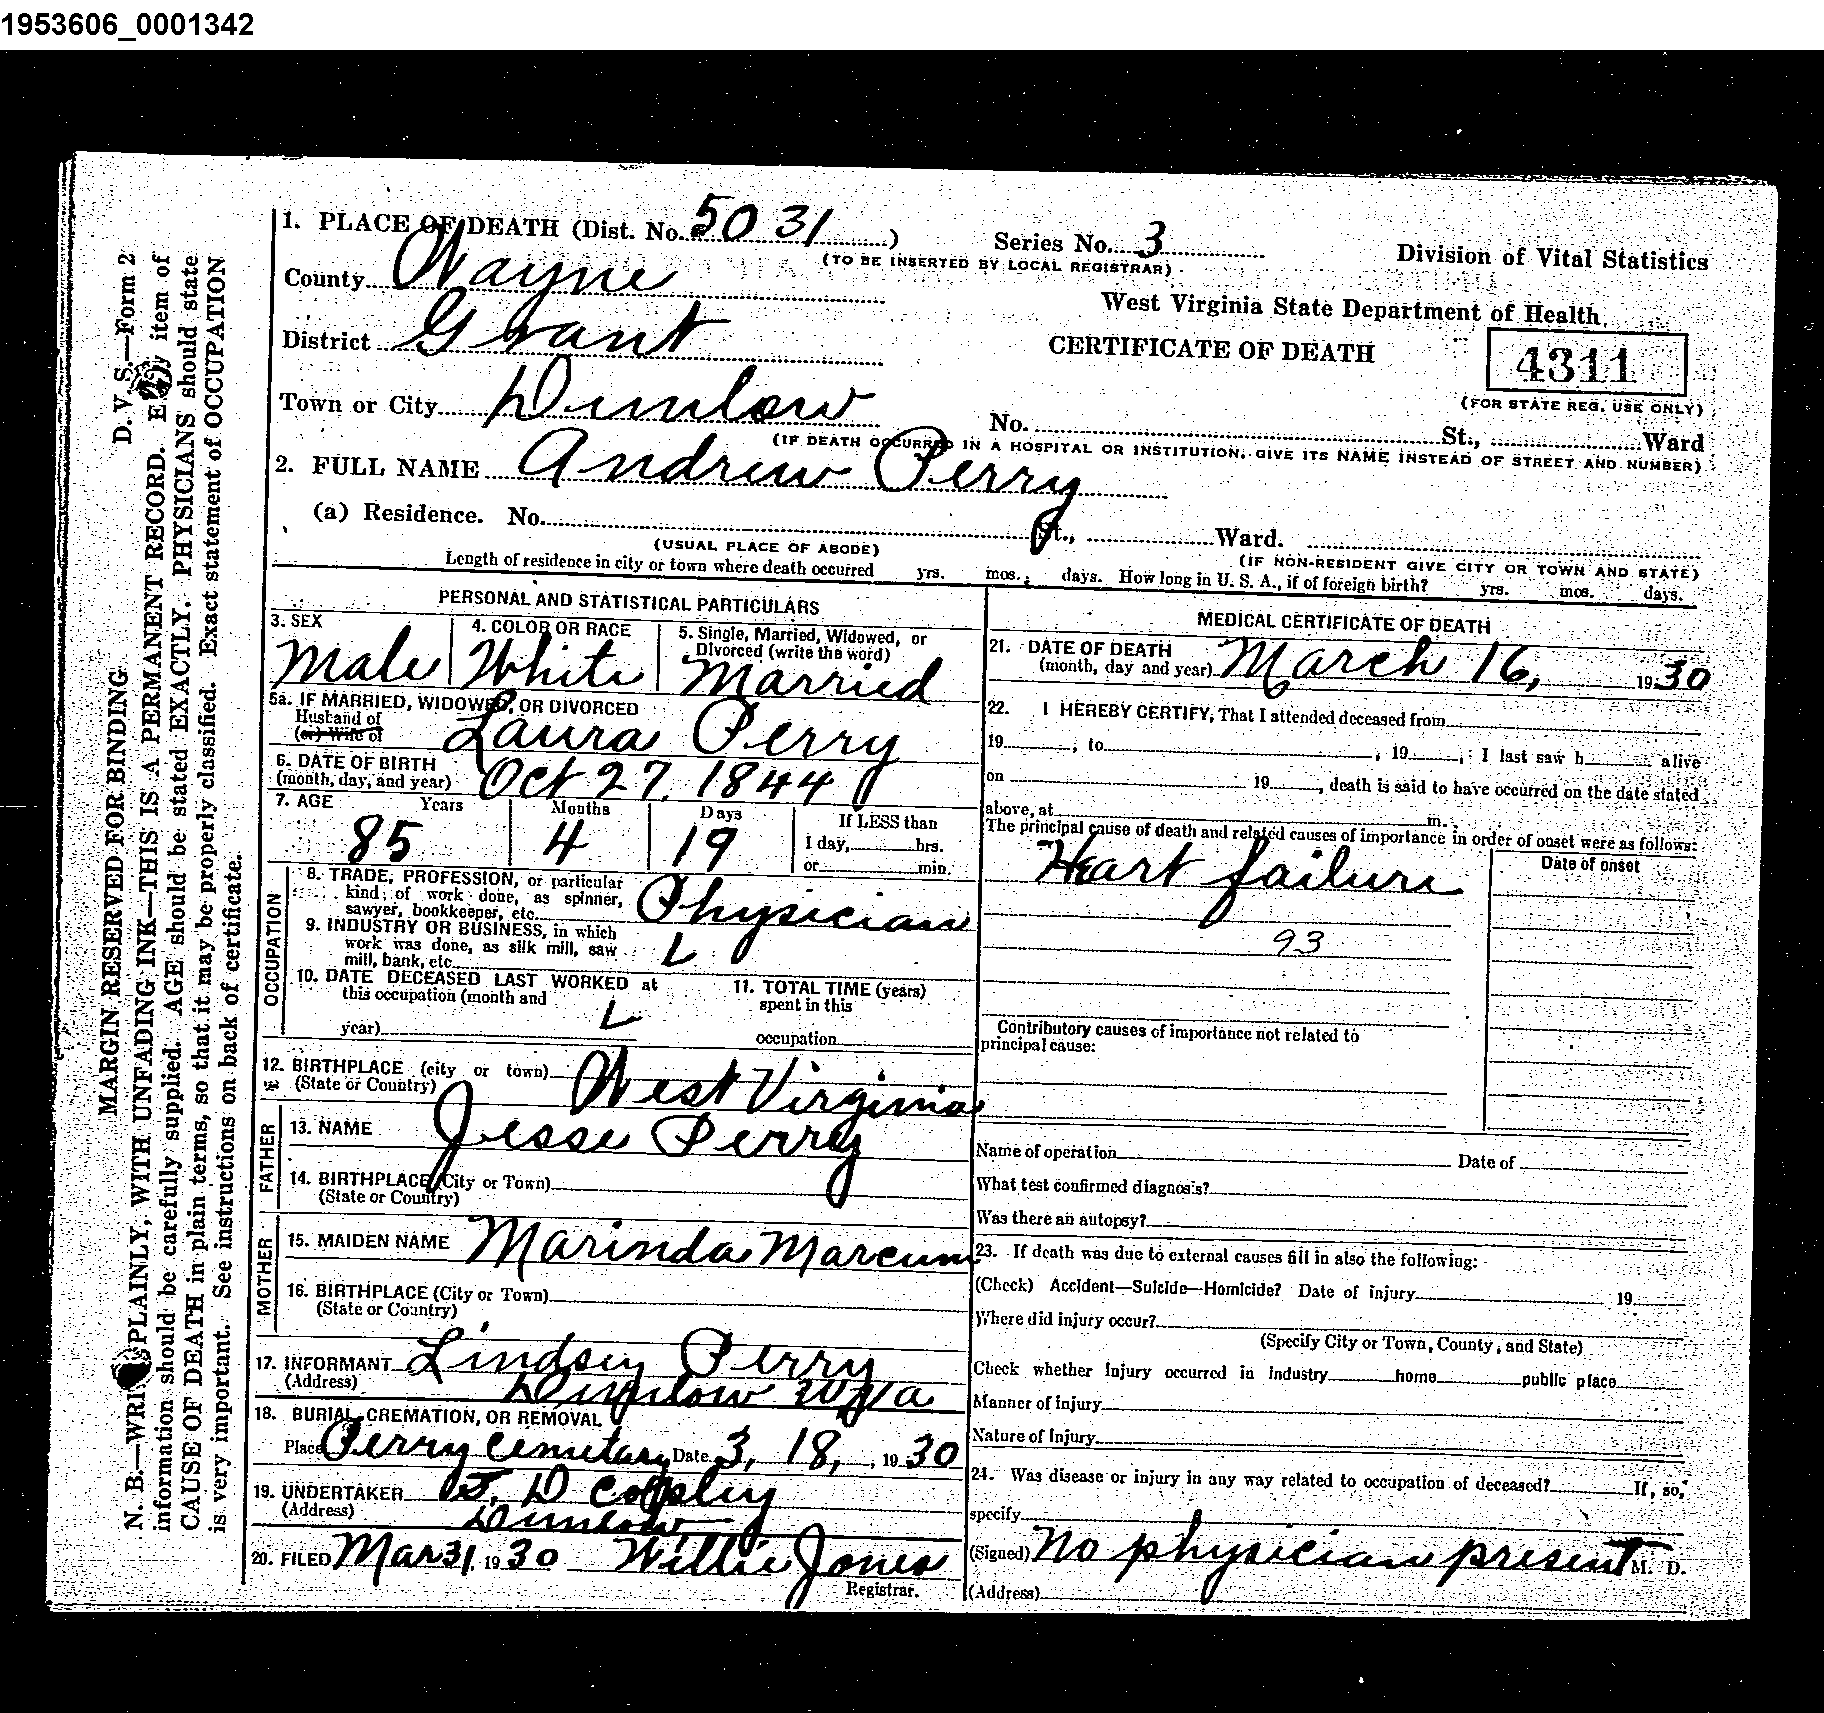 1953606_0001342
1. PLACE OF DEATH (Dist. No. 5031)
Series No. 3
(TO BE INSERTED BY LOCAL REGISTRAR)
Division of Vital Statistics
County Wayne
West Virginia State Department of Health
District Grant
CERTIFICATE OF DEATH
4311
(FOR STATE REG. USE ONLY)
Town or City Dunlow
No. St., Ward
(IF DEATH OCCURRED IN A HOSPITAL OR INSTITUTION, GIVE ITS NAME INSTEAD OF STREET AND NUMBER)
2. FULL NAME Andrew Perry
(a) Residence. No. St., Ward.
(USUAL PLACE OF ABODE)
(IF NON-RESIDENT GIVE CITY OR TOWN AND STATE)
Length of residence in city or town where death occurred yrs. mos. days. How long in U. S. A., if of foreign birth? yrs. mos. days.
PERSONAL AND STATISTICAL PARTICULARS
3. SEX
Male
4. COLOR OR RACE
White
5. Single, Married, Widowed, or
Divorced (write the word)
Married
5a. IF MARRIED, WIDOWED, OR DIVORCED
Husband of
(or) Wife of
Laura Perry
6. DATE OF BIRTH
(month, day, and year) Oct 27, 1844
7. AGE Years Months Days
85 4 19
If LESS than
1 day, hrs.
or min.
OCCUPATION
8. TRADE, PROFESSION, or particular
kind of work done, as spinner,
sawyer, bookkeeper, etc. Physician
9. INDUSTRY OR BUSINESS, in which
work was done, as silk mill, saw
mill, bank, etc.
10. DATE DECEASED LAST WORKED at
this occupation (month and
year)
11. TOTAL TIME (years)
spent in this
occupation
12. BIRTHPLACE (city or town)
(State or Country) West Virginia
FATHER
13. NAME Jesse Perry
14. BIRTHPLACE (City or Town)
(State or Country)
MOTHER
15. MAIDEN NAME Marinda Marcum
16. BIRTHPLACE (City or Town)
(State or Country)
17. INFORMANT Lindsey Perry
(Address) Dunlow W Va
18. BURIAL, CREMATION, OR REMOVAL
Place Perry Cemetary Date 3, 18, 1930
19. UNDERTAKER J. D Copley
(Address) Dunlow
20. FILED Mar 31, 1930 Willie Jones
Registrar.
MEDICAL CERTIFICATE OF DEATH
21. DATE OF DEATH
(month, day and year) March 16, 1930
22. I HEREBY CERTIFY, That I attended deceased from
19 , to , 19 ; I last saw h alive
on 19 , death is said to have occurred on the date stated
above, at m.
The principal cause of death and related causes of importance in order of onset were as follows:
Date of onset
Heart failure
93
Contributory causes of importance not related to
principal cause:
Name of operation Date of
What test confirmed diagnosis?
Was there an autopsy?
23. If death was due to external causes fill in also the following:
(Check) Accident—Suicide—Homicide? Date of injury 19
Where did injury occur?
(Specify City or Town, County, and State)
Check whether injury occurred in industry home public place
Manner of injury
Nature of injury
24. Was disease or injury in any way related to occupation of deceased? If, so,
specify
(Signed) No physician present M. D.
(Address)
D. V. S.—Form 2
MARGIN RESERVED FOR BINDING
N. B.—WRITE PLAINLY, WITH UNFADING INK—THIS IS A PERMANENT RECORD. Every item of
information should be carefully supplied. AGE should be stated EXACTLY. PHYSICIANS should state
CAUSE OF DEATH in plain terms, so that it may be properly classified. Exact statement of OCCUPATION
is very important. See instructions on back of certificate.